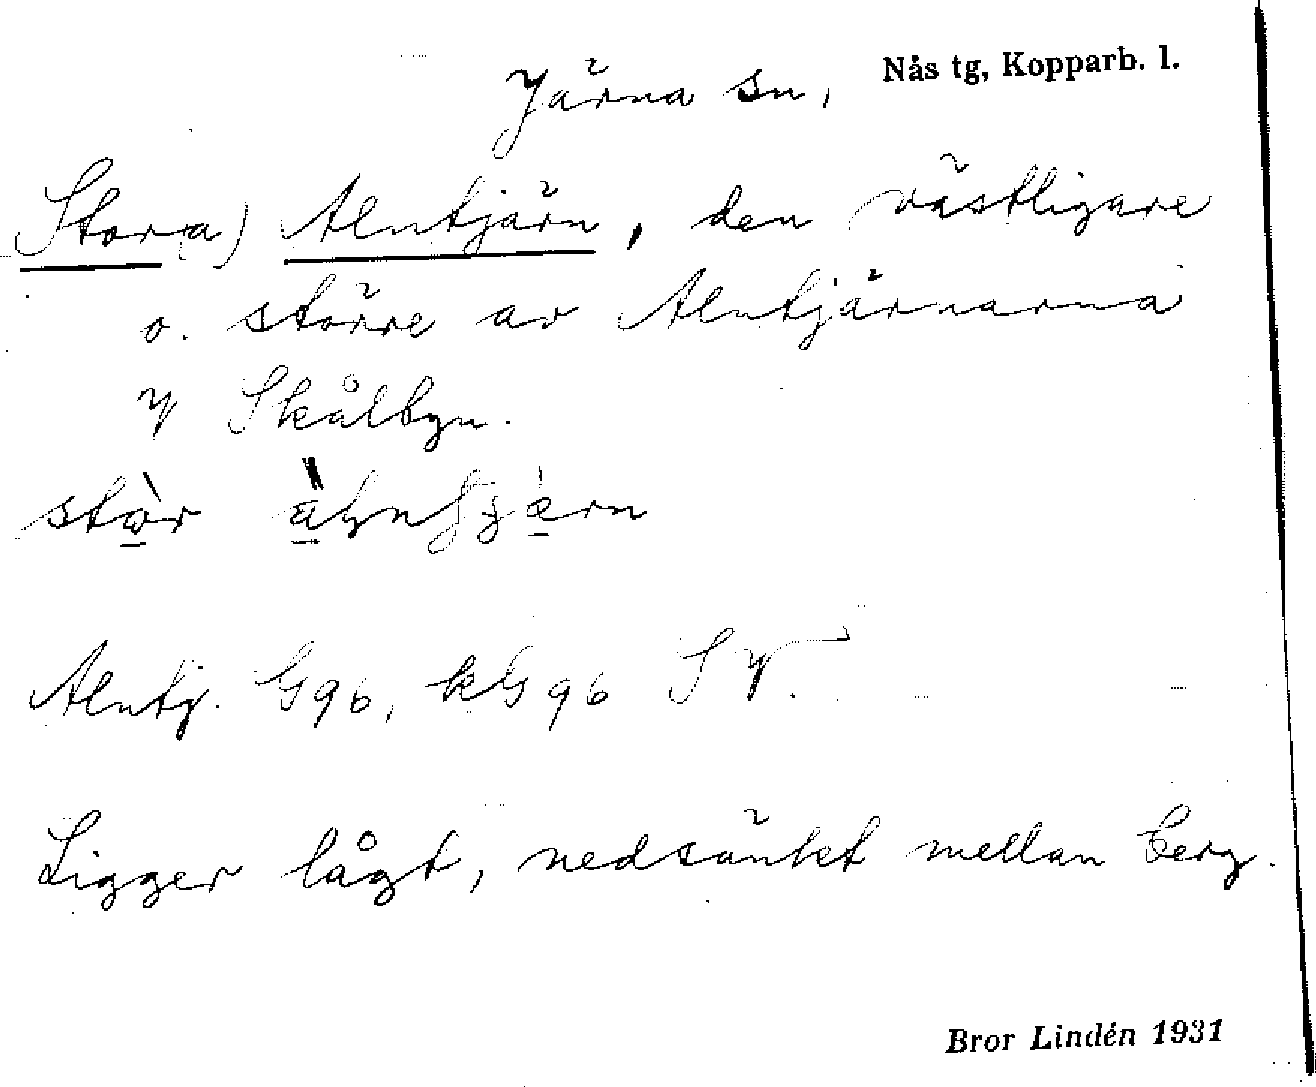 Järna sn, Nås tg, Kopparb. l.
Stor(a) Alntjärn, den västligare
o. större av Alntjärnarna
V Skålbyn.
stòr
Alntj. G96, kG96 SV.
Ligger lågt, nedsänkt mellan berg.
Bror Lindén 1931